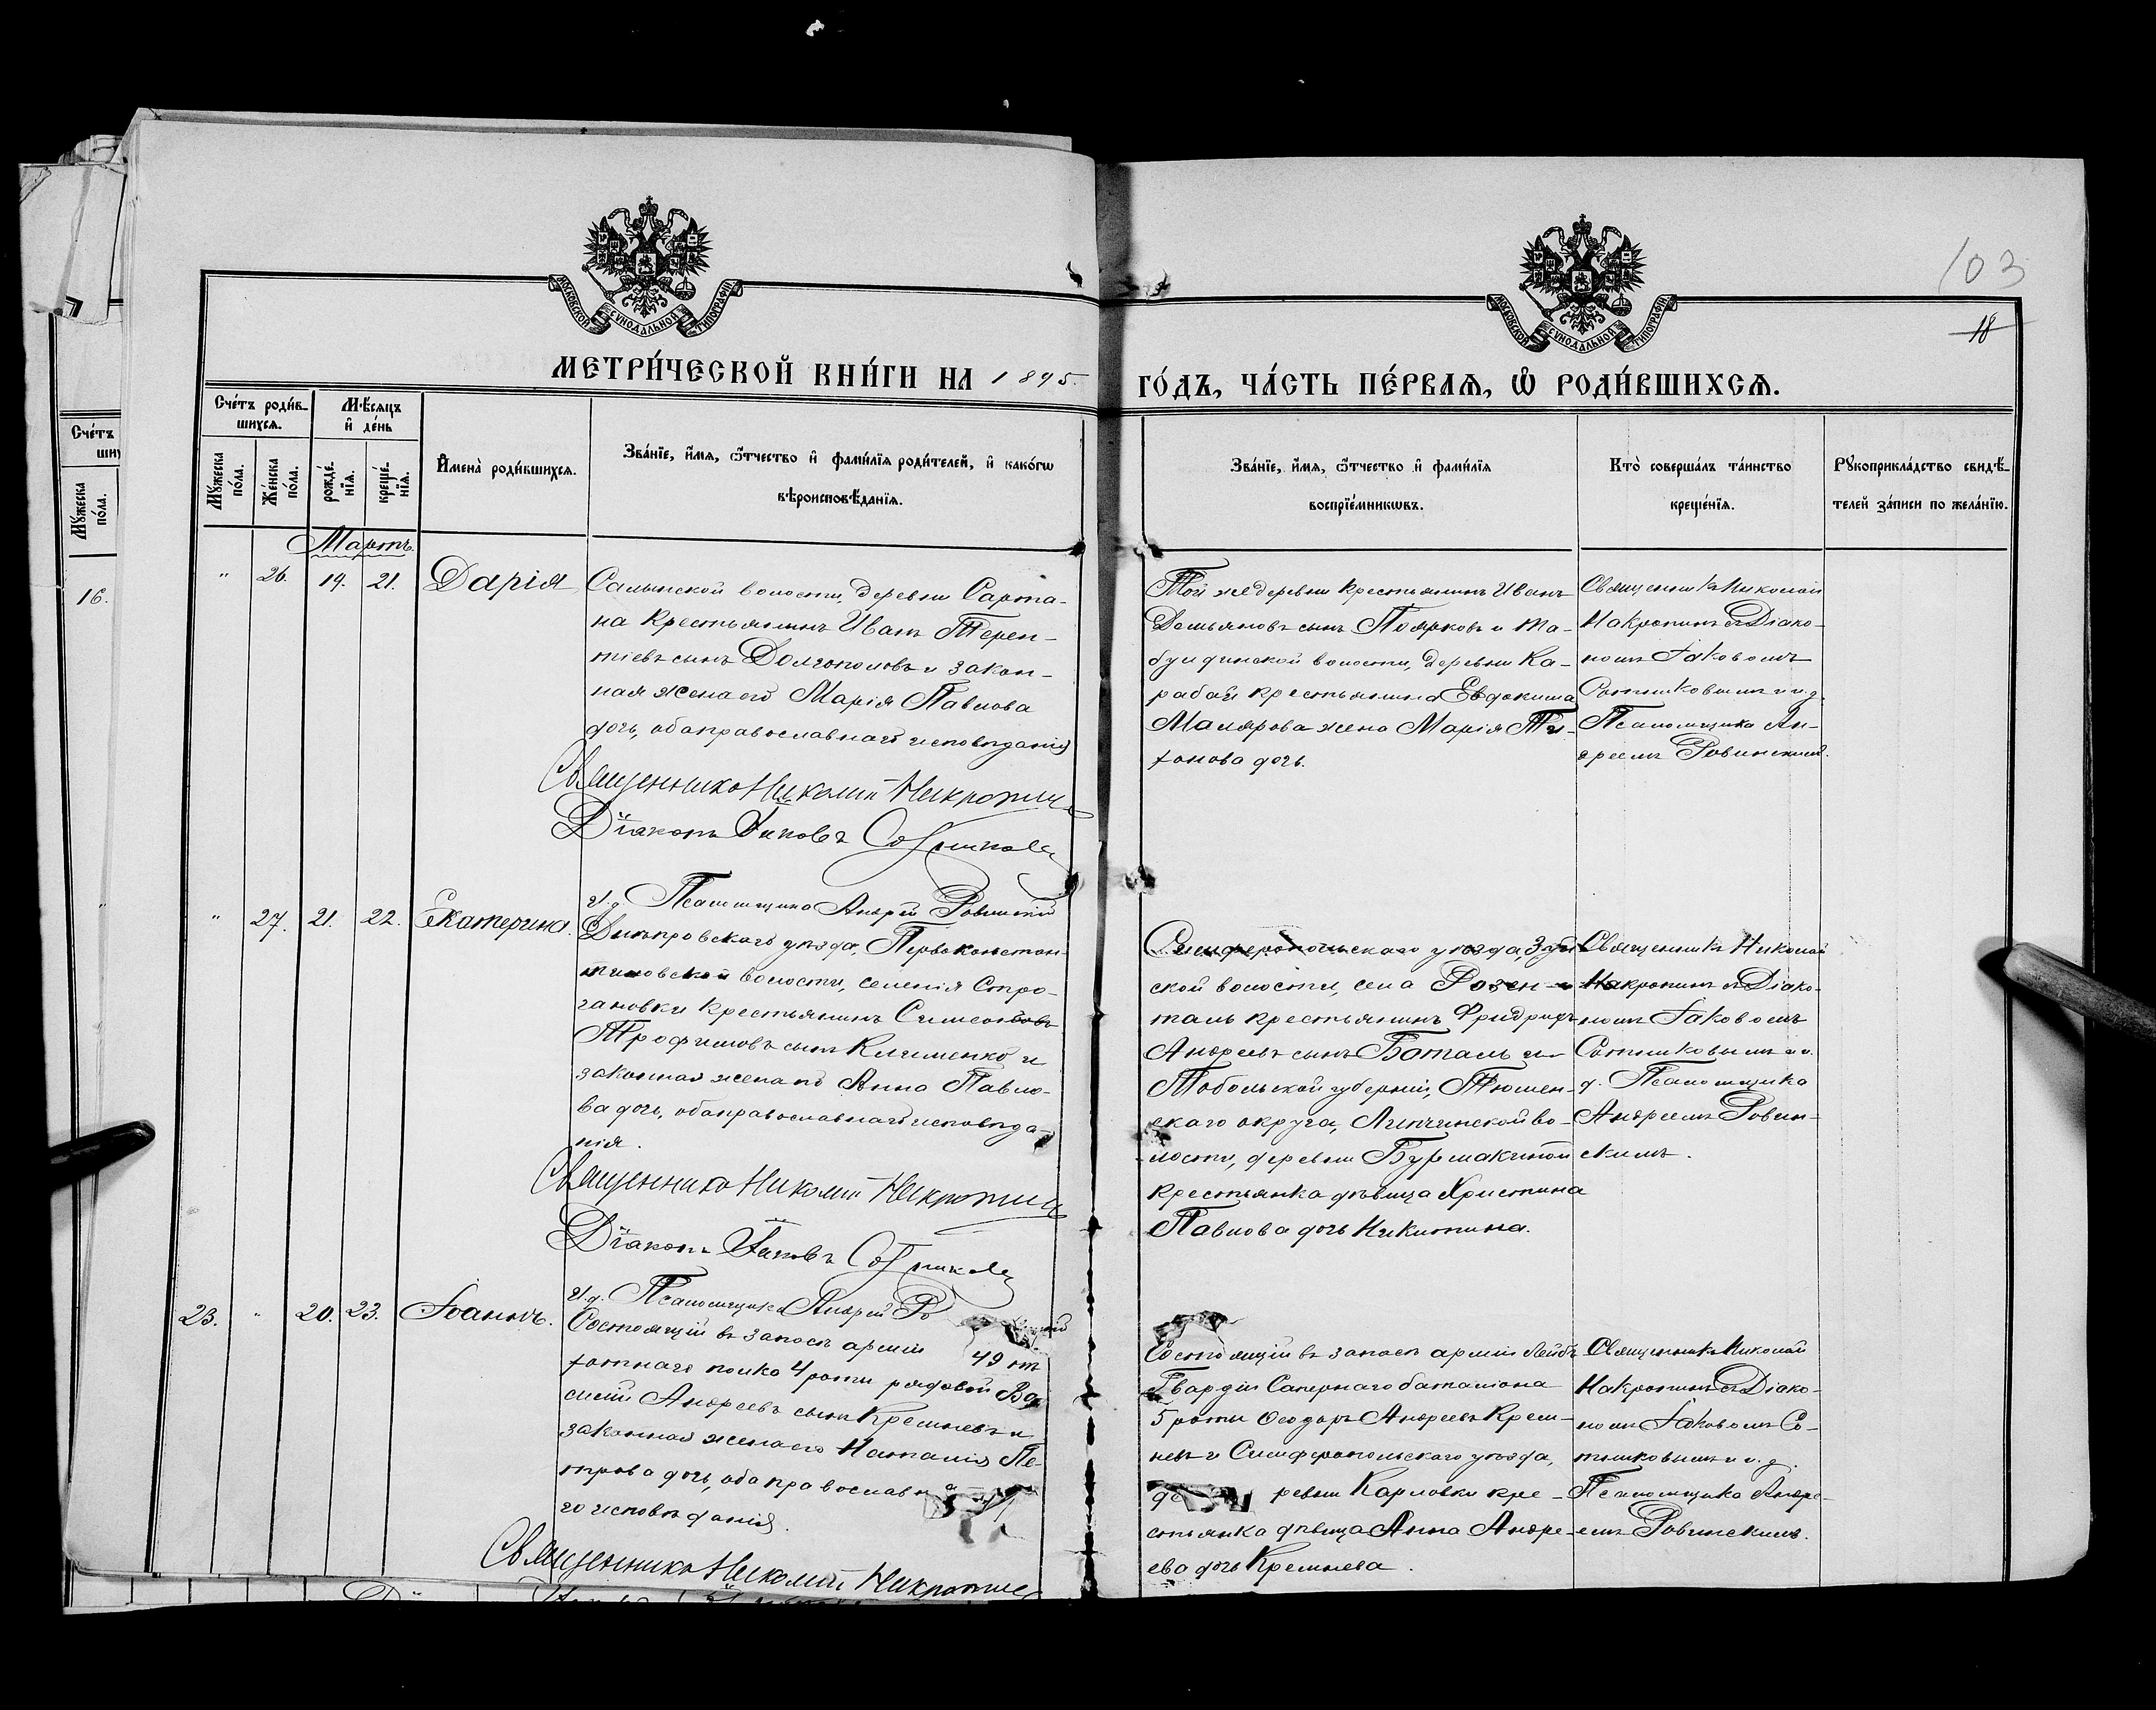 103
18
МОСКОВСКОЙ СѴНОДАЛЬНОЙ ТИПОГРАФІИ
МОСКОВСКОЙ СѴНОДАЛЬНОЙ ТИПОГРАФІИ
МЕТРИ́ЧЕСКОЙ КНИ́ГИ НА 1895.
ГО́ДЪ, ЧА́СТЬ ПЕ́РВАѦ, Ѡ РОДИ́ВШИХСѦ.
Сче́тъ роди́в-
шихсѧ.
Мѣ́сѧцъ
и де́нь
Мꙋ́жеска по́ла.
Же́нска по́ла.
рожде́-
нїѧ.
креще́-
нїѧ.
Имена̀ роди́вшихсѧ.
Зва́нїе, и́мѧ, ѻ́тчество и фами́лїѧ роди́телей, и како́гѡ
вѣроисповѣ́данїѧ.
Зва́нїе, и́мѧ, ѻ́тчество и фами́лїѧ
воспрїе́мникѡвъ.
Кто̀ соверша́лъ та́инство
креще́нїѧ.
Рꙋкоприкла́дство свидѣ́-
телей за́писи по жела́нїю.
Сче́тъ
ших
Мꙋ́жеска
по́ла.
16.
Мартъ.
" 26. 19. 21. Дарія
деревни Сарта-
на крестьянинъ Иванъ Терен-
тіевъ сынъ Долгополовъ и закон-
ная жена его Марія Павлова
дочь, оба православнаго исповѣданія
Священникъ Николай Накропинъ
Діаконъ Іаковъ Сотниковъ
И. д. Псаломщика Андрей Ровинскій
Той же деревни крестьянинъ Иванъ
Демьяновъ сынъ Поярковъ и Та-
булдинской волости, деревни Ка-
рабай крестьянина Евдокима
Малярова жена Марія
дочь.
Священникъ Николай
Накропинъ съ Діако-
номъ Іаковомъ
Сотниковымъ и и. д.
Псаломщика Ан-
дреемъ Ровинскимъ.
" 27. 21. 22. Екатерина.
Днѣпровскаго уѣзда, Первоконстан-
тиновской волости, селенія Стро-
гановки крестьянинъ Симеонъ
Трофимовъ сынъ Клименко и
законная жена его Анна Павло-
ва дочь, оба православнаго исповѣда-
нія.
Священникъ Николай Накропинъ
Діаконъ Іаковъ Сотниковъ
И. д. Псаломщика Андрей Ро
Симферопольскаго уѣзда, Зуй-
ской волости, села Розен-
таль крестьянинъ Фридрихъ
Андреевъ сынъ Боталь и
Тобольской губерніи, Тюмен-
скаго округа, Липчинской во-
лости, деревни Бурмакиной
крестьянка дѣвица Христина
Павлова дочь Никитина.
Священникъ Николай
Накропинъ съ Діако-
номъ Іаковомъ
Сотниковымъ и и.
д. Псаломщика
Андреемъ Ровин-
скимъ.
23. " 20. 23. Іоаннъ.
Состоящій въ запасѣ арміи 49
полка 4 роты рядовой Ва
силій Андреевъ сынъ Кремневъ и
законная жена его Наталія Пе-
трова дочь, оба православна
го исповѣданія.
Священникъ Николай Накропинъ
Состоящій въ запасѣ арміи Лейбъ
Гвардіи Сапернаго баталіона
5 роты Ѳеодоръ Андреевъ Крем-
невъ и Симферопольскаго уѣзда,
де ревни Карловки кре-
стьянка дѣвица Анна Андре-
ева дочь Кремнева.
Священникъ Николай
Накропинъ съ Діако-
номъ Іаковомъ Со-
тниковымъ и и. д.
Псаломщика Андре-
емъ Ровинскимъ.